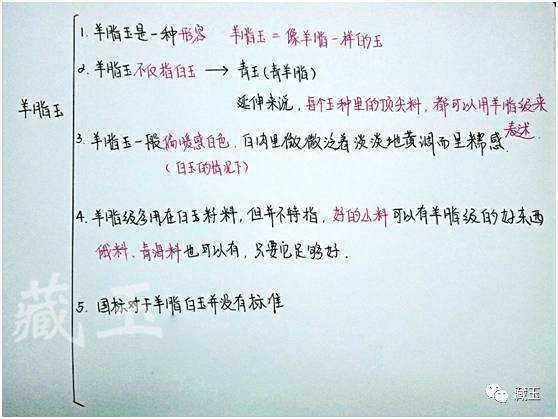 1. 羊脂玉是一种形容 羊脂玉=像羊脂一样的玉
2. 羊脂玉不仅指白玉 → 青玉(青羊脂)
延伸来说,每个玉种里的顶尖料,都可以用羊脂级来
表述.
羊脂玉
3. 羊脂玉一般偏暖感白色.白内里微微泛着淡淡地黄润而呈糯感.
(白玉的情况下)
4. 羊脂级多用在白玉籽料,但并不特指,好的山料可以有羊脂级的好东西
俄料.青海料也可以有,只要它足够好.
5. 国标对于羊脂白玉并没有标准
藏玉
藏玉